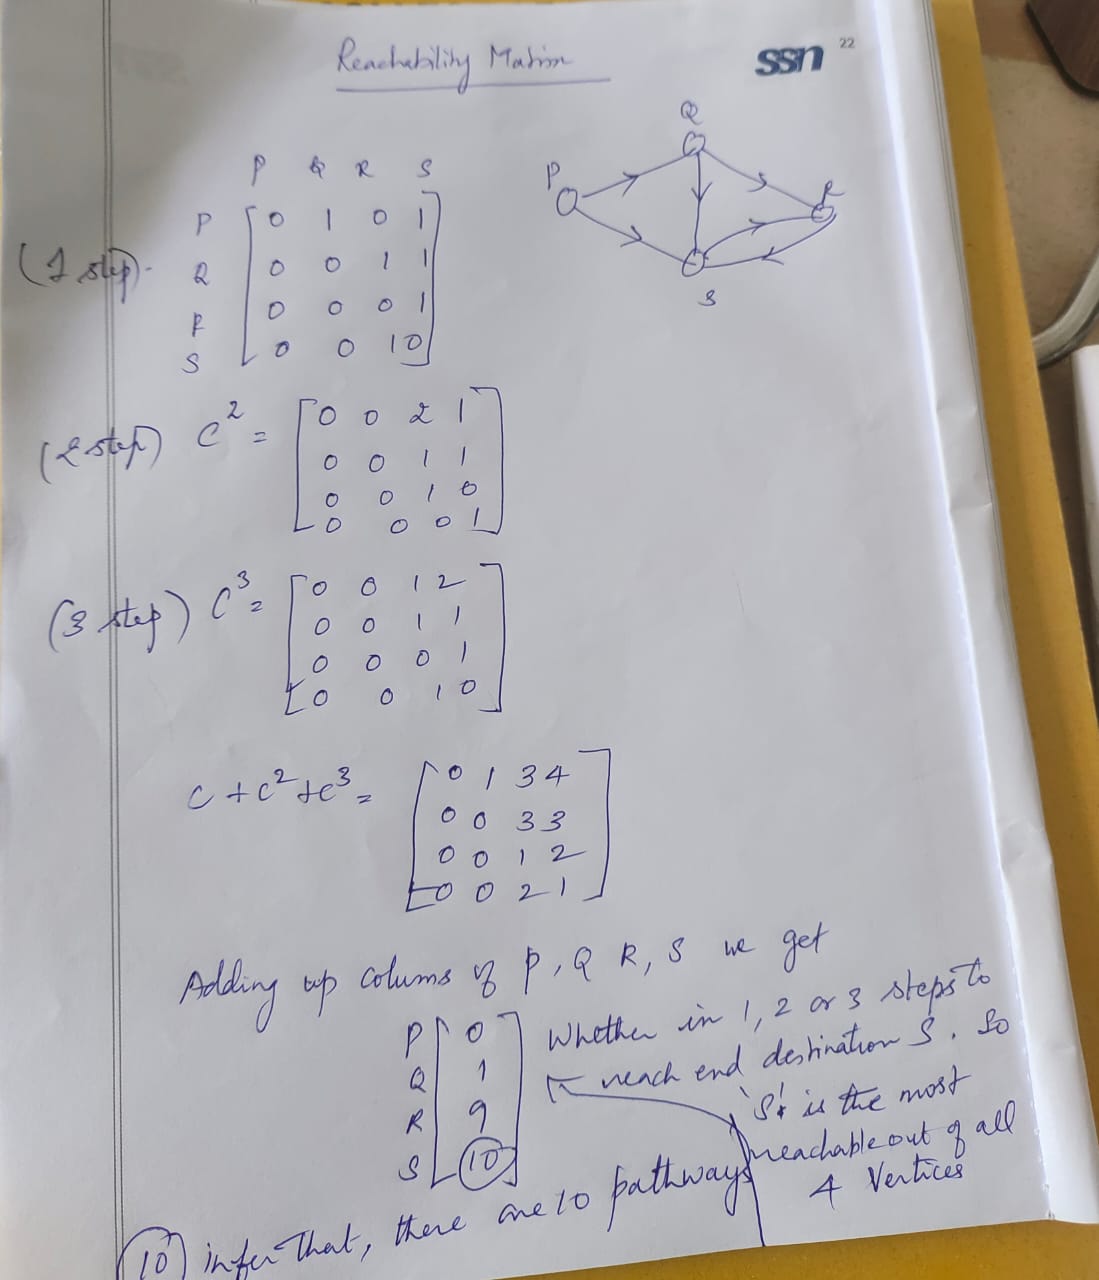 Reachability Matrix
ssn 22
Q
P
R
S
P Q R S
P 0 1 0 1
(1 step) Q 0 0 1 1
R 0 0 0 1
S 0 0 1 0
(2 step) C² = 0 0 2 1
0 0 1 1
0 0 1 0
0 0 0 1
(3 step) C³ = 0 0 1 2
0 0 1 1
0 0 0 1
0 0 1 0
C + C² + C³ = 0 1 3 4
0 0 3 3
0 0 1 2
0 0 2 1
Adding up colums of P, Q R, S we get
P 0
Q 1
R 9
S 10
Whether in 1, 2 or 3 steps to
reach end destination S. So
'S' is the most
reachable out of all
4 Vertices
10 infer that, there are 10 pathways